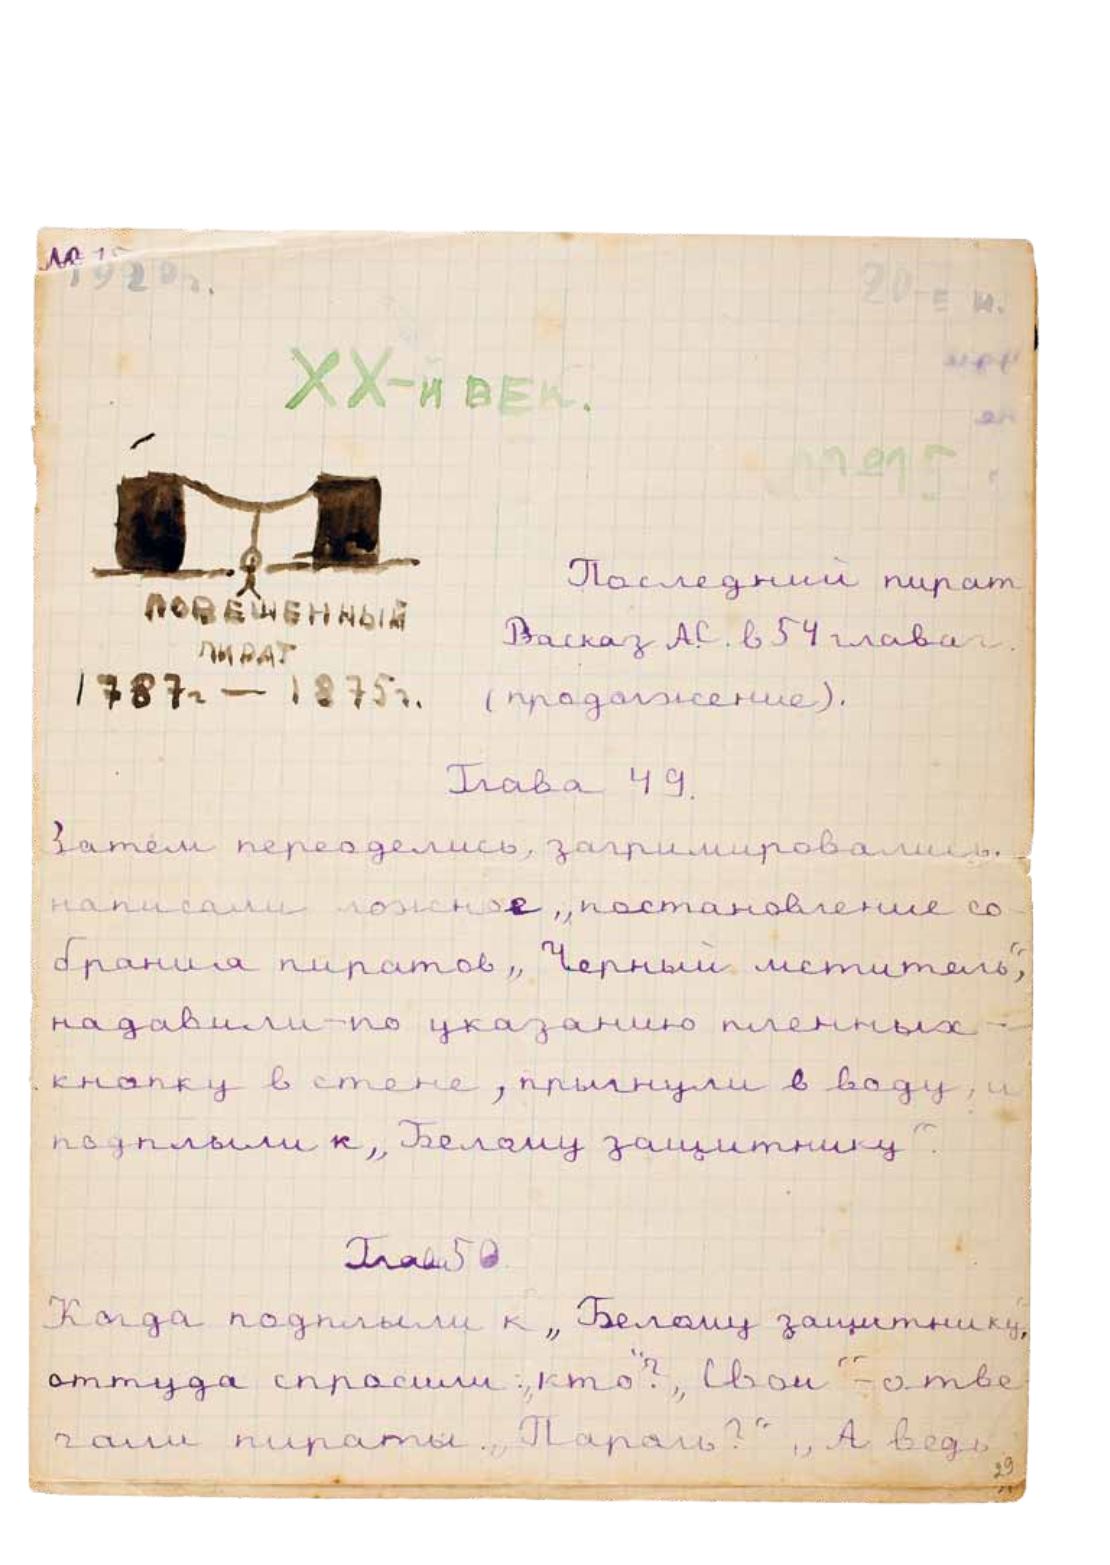 № 15
1920г.
XX-й ВЕК.
№ 15
ПОВЕШЕННЫЙ
ПИРАТ
1787г — 1875г.
Последний пират
Расказ А.С. в 54 главах.
(продолжение).
Глава 49.
Затем переоделись, загримировались.
написали ложное „постановление со-
брания пиратов „Черный мститель“,
надавили-по указанию пленных-
кнопку в стене, прыгнули в воду, и
подплыли к „Белому защитнику“.
Глав 50
Когда подплыли к „Белому защитнику,
оттуда спросили: „кто“? „Свои“-отве
чали пираты. „Пароль?“ „А ведь
29